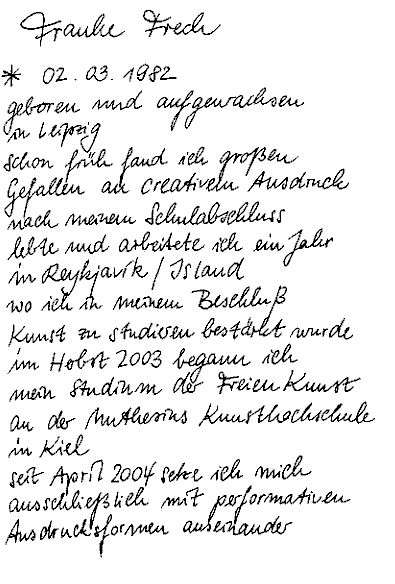 Frauke Frech
* 02.03.1982
geboren und aufgewachsen
in Leipzig
schon früh fand ich großen
Gefallen an creativem Ausdruck
nach meinem Schulabschluss
lebte und arbeitete ich ein Jahr
in Reykjavík / Island
wo ich in meinem Beschluß
Kunst zu studieren bestärkt wurde
im Herbst 2003 begann ich
mein Studium der Freien Kunst
an der Muthesius Kunsthochschule
in Kiel
seit April 2004 setze ich mich
ausschließlich mit performativen
Ausdrucksformen auseinander